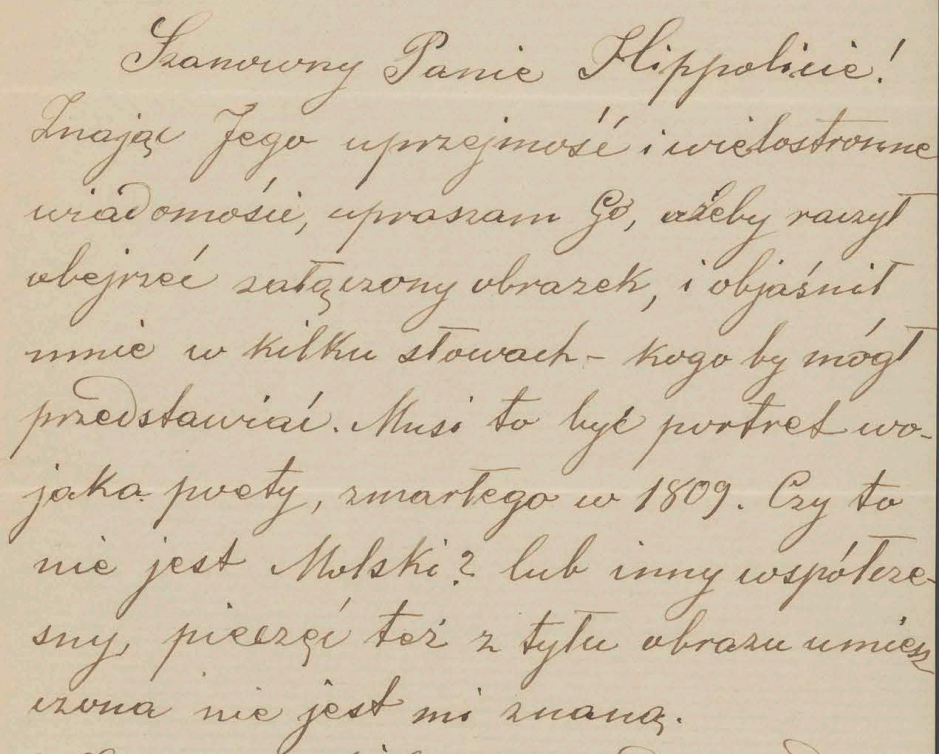 Szanowny Panie Hippolicie!
Znając Jego uprzejmość i wielostronne
wiadomości, upraszam Go, ażeby raczył
obejrzeć załączony obrazek, i objaśnił
mnie w kilku słowach – kogo by mógł
przedstawiać. Musi to być portret wo-
jaka poety, zmarłego w 1809. Czy to
nie jest Molski? lub inny współcze-
sny, pieczęć też z tyłu obrazu umiesz
czona nie jest mi znaną.